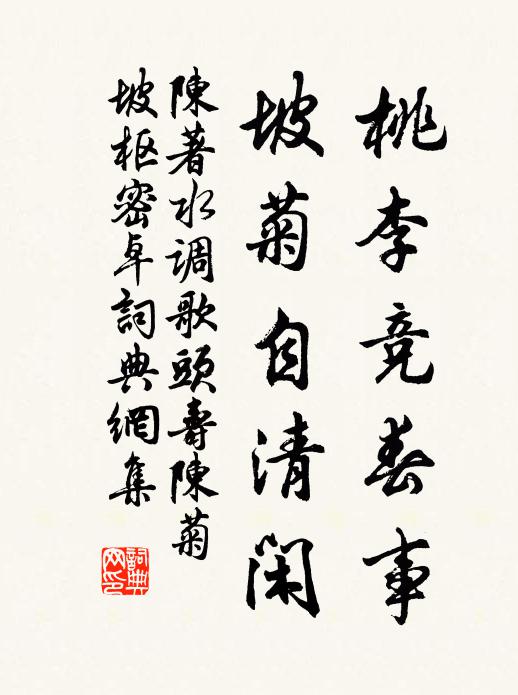 桃李竞春事
坡菊自清閑
陳著水调歌頭壽陳菊
坡枢密卓詞典網集
詞典
网印